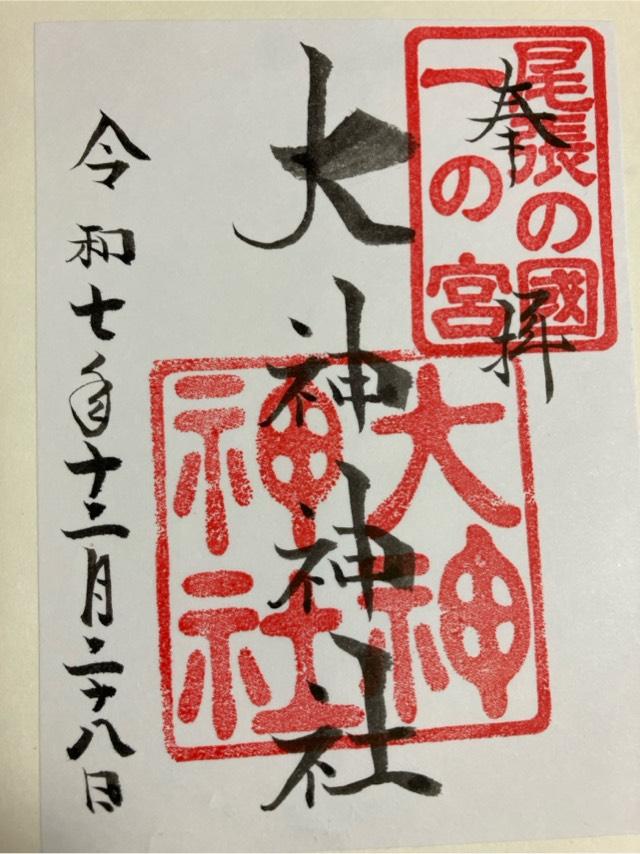 奉拝
尾張の國
一の宮
大神神社
大神
神社
令和七年十二月二十八日